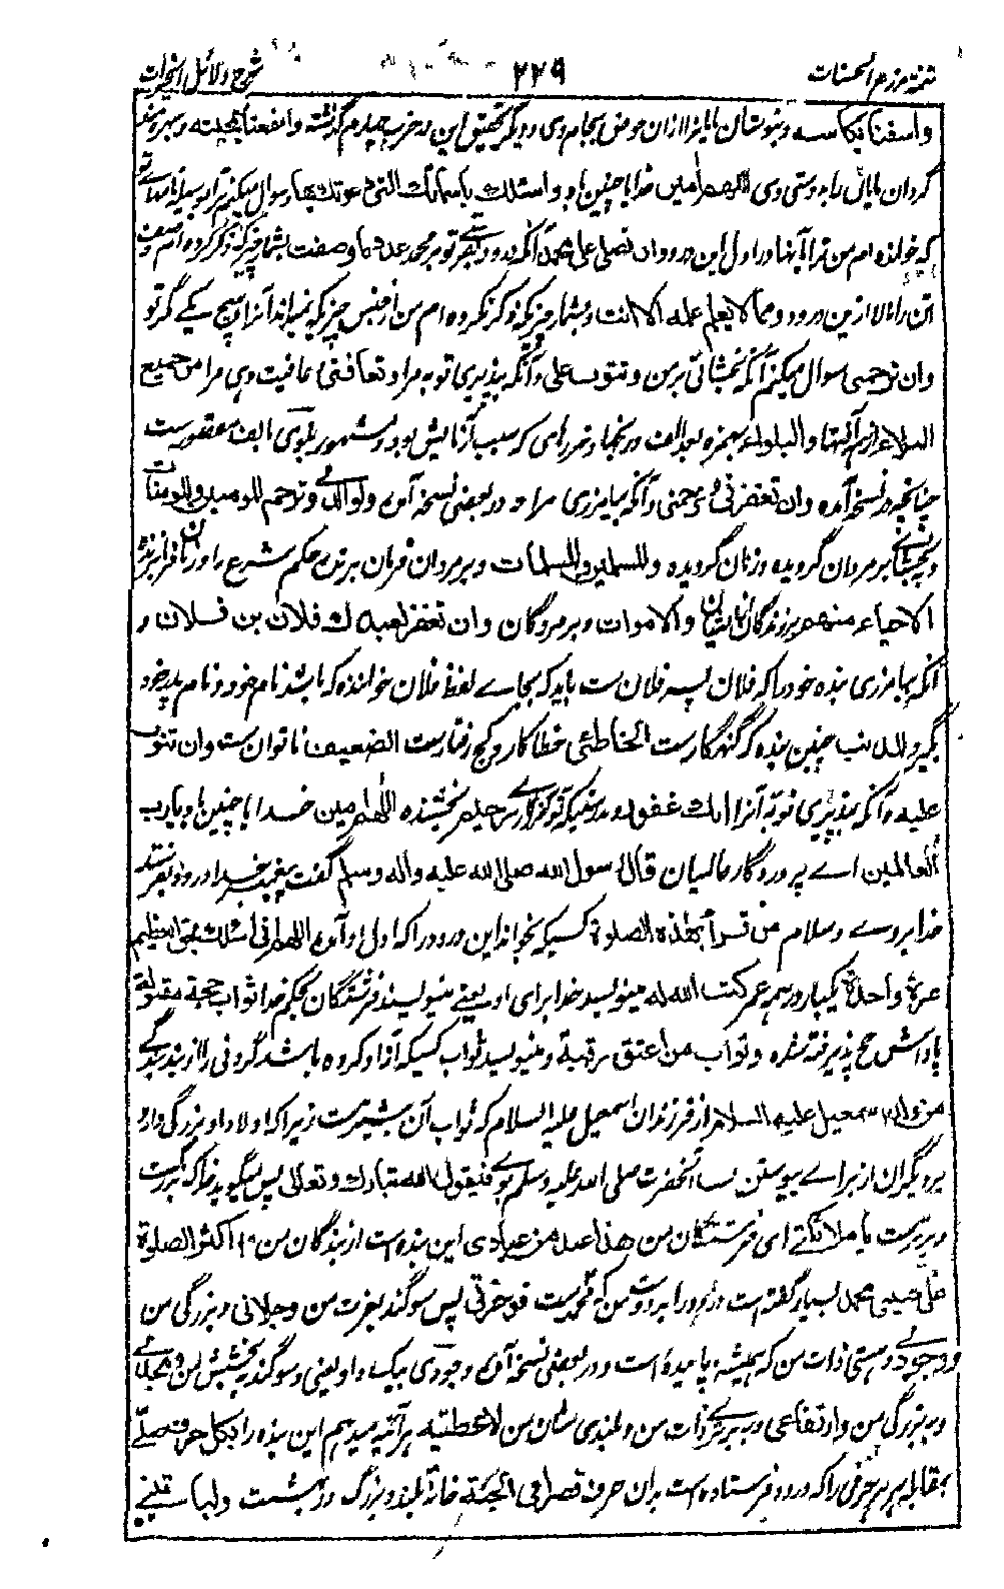 تتمه مزرع الحسنات ۲۲۹ شرح دلائل الخیرات
واسقنا بکاسه وبنوشان مایانرا ازان حوض بجام وی ودیگر تحقیق این در حزب چهارم گذشته وانفعنا بمحبته وبهره‌مند
گردان مایان را بدوستی وی اللهم آمین خدایا چنین باد واسئلك باسمائك التی دعوتك بها وسوال میکنم ترا بوسیله نامهای تو
که خوانده‌ام من ترا بآنها در اول این درود ان تصلی علی محمد آنکه درود بفرستی تو بر محمد عدد ما وصفت بشمار چیزیکه ذکر کرده‌ام من وصف
آن را بالا ازین درود ومما لا یعلم علمه الا انت وبشمار چیزیکه ذکر نکرده‌ام من از جنس چیزیکه نمیداند آنرا هیچ یکے مگر تو
وان ترحمنی سوال میکنم آنکه بخشائی بر من وتتوب علی وآنکه بپذیری توبه مرا وتعافنی وعافیت دهی مرا من جمیع
البلاء از همه آفتها والبلواء بهمزه بعد الف در ینجا وضررهای که سبب آزمایش بود ومشهور بلوی الف مقصورست
چنانچه در نسخه آمده وان تغفر لی وترحمنی وآنکه بیامرزی مرا ودر بعضی نسخه آمده ولوالدی وترحم المومنین والمومنات
وببخشائی بر مردان گرویده وزنان گرویده والمسلمین والمسلمات وبر مردان فرمان برنده حکم شرع را وزنان فرمان برنده
الاحیاء منهم بر زندگان ازیشان والاموات وبر مردگان وان تغفر لعبدك فلان بن فلان و
آنکه بیامرزی بنده خود را که فلان پسر فلان ست باید که بجاے لفظ فلان خواننده که باشد نام خود ونام پدر خود
بگیرد المذنب چنین بنده که گنهگارست الخاطئی خطاکار وکج رفتارست الضعیف ناتوان ست وان تتوب
علیه وآنکه بپذیری توبه آنرا انك غفور بدرستیکه تو آمرزگارے رحیم بخشنده اللهم آمین خدایا چنین باد یا رب
العالمین اے پروردگار عالمیان قال رسول الله صلی الله علیه واله وسلم گفت پیغمبر خدا درود بفرستد
خدا بر وے وسلام من قرأ هذه الصلوة کسیکه بخواند این درود را که اول او آمده اللهم انی اسئلك بحق العظیم
مرة واحدة یکبار در همه عمر کتب الله له مینویسد خدا برای او یعنے مینویسند فرشتگان بحکم خدا ثواب حجة مقبولة
پاداش حج پذیرفته شده وثواب من اعتق رقبة ومینویسد ثواب کسیکه آزاد کرده باشد گردنی را از بند بندگی
من ولد اسمعیل علیه السلام از فرزندان اسمعیل علیه السلام که ثواب آن بیشترست زیرا که اولاد او بزرگی دارد
بر دیگران از براے پیوستن نسب آنحضرت صلی الله علیه وسلم بوے فیقول الله تبارك وتعالی پس میگوید خدا که بزرگ ست
وبرترست یا ملائکتی ای فرشتگان من هذا عبد من عبادی این بنده ست از بندگان من اکثر الصلوة
علی حبیبی محمد بسیار گفته است درود را بر دوست من که محمدست فوعزتی پس سوگند بعزت من وجلالی وبزرگی من
ووجودی وهستی ذات من که همیشه پاینده است ودر بعضی نسخه آمده وجودی بیک واو یعنی وسوگند به بخشش من ومجدی
وبه بزرگی من وارتفاعی وبه برترے ذات من وبلندی شان من لاعطینه هر آئینه میدهم این بنده را بکل حرف صلی
بمقابله هر حرفی را که درود فرستاده است بدان حرف قصرا فی الجنة خانه بلند وبزرگ در بهشت ولیاتینی